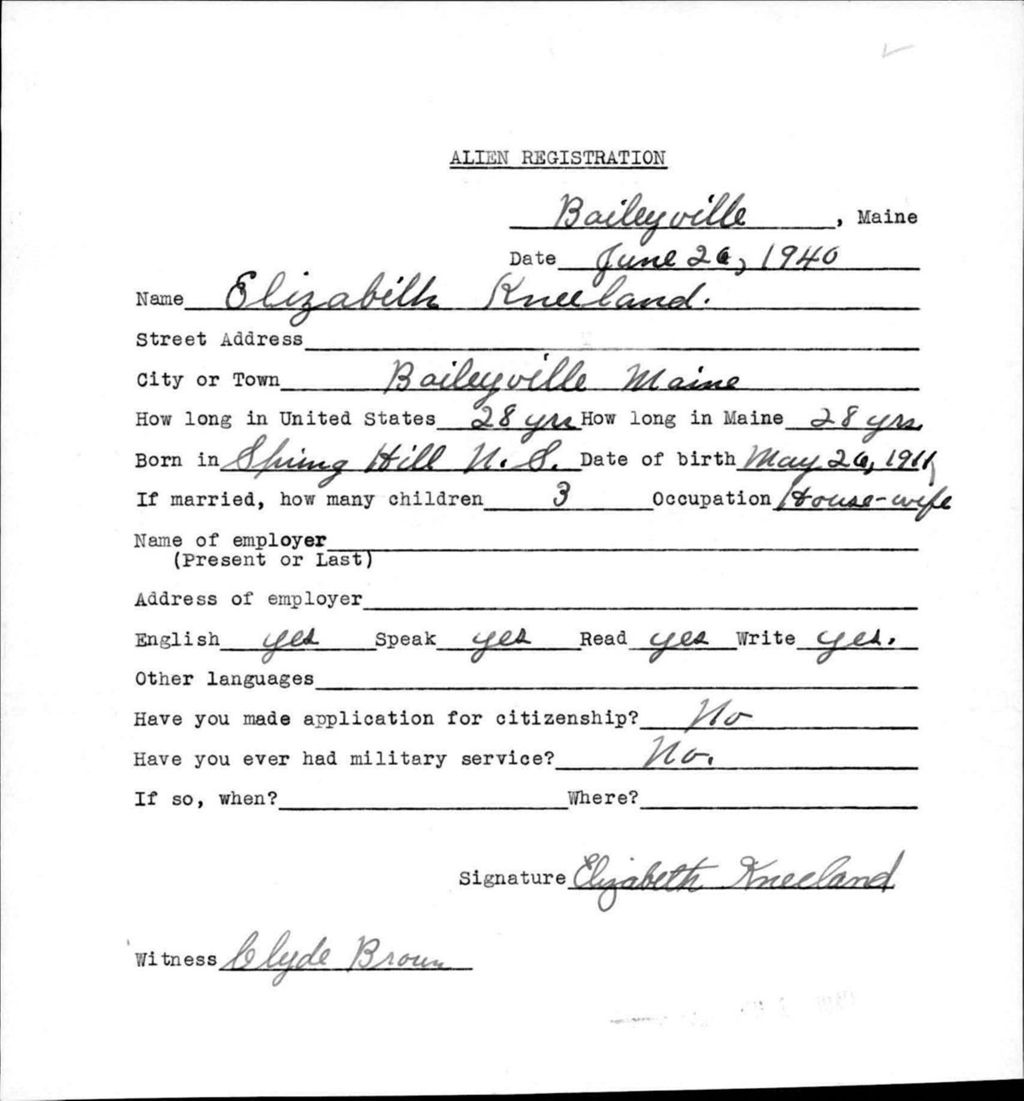 ALIEN REGISTRATION
Baileyville, Maine
Date June 26, 1940
Name Elizabeth Kneeland.
Street Address
City or Town Baileyville Maine
How long in United States 28 yrs How long in Maine 28 yrs.
Born in Spring Hill N. S. Date of birth May 26, 1911
If married, how many children 3 Occupation House-wife
Name of employer
(Present or Last)
Address of employer
English yes Speak yes Read yes Write yes.
Other languages
Have you made application for citizenship? No
Have you ever had military service? No.
If so, when? Where?
Signature Elizabeth Kneeland
Witness Clyde Brown